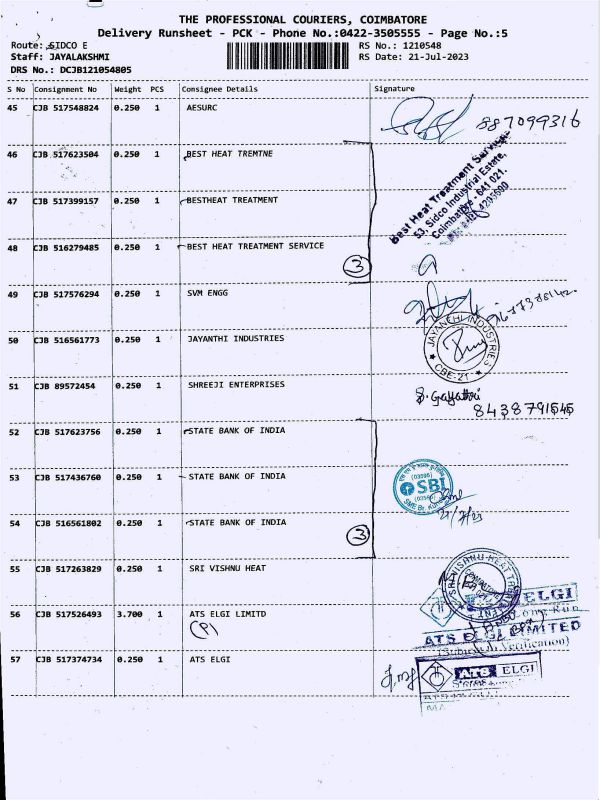 THE PROFESSIONAL COURIERS, COIMBATORE
Delivery Runsheet - PCK - Phone No.:0422-3505555 - Page No.:5
Route: SIDCO E RS No.: 1210548
Staff: JAYALAKSHMI RS Date: 21-Jul-2023
DRS No.: DCJB121054805
S No Consignment No Weight PCS Consignee Details Signature
45 CJB 517548824 0.250 1 AESURC
887099316
46 CJB 517623504 0.250 1 BEST HEAT TREMTNE
Best Heat Treatment Services
53, Sidco Industrial Estate,
Coimbatore - 641 021.
47 CJB 517399157 0.250 1 BESTHEAT TREATMENT
48 CJB 516279485 0.250 1 BEST HEAT TREATMENT SERVICE
3
49 CJB 517576294 0.250 1 SVM ENGG
50 CJB 516561773 0.250 1 JAYANTHI INDUSTRIES
JAYANTHI INDUSTRIES
CBE-21
51 CJB 89572454 0.250 1 SHREEJI ENTERPRISES
S. Gayathri
8438791545
52 CJB 517623756 0.250 1 STATE BANK OF INDIA
53 CJB 517436760 0.250 1 STATE BANK OF INDIA
SBI
21/7/23
54 CJB 516561802 0.250 1 STATE BANK OF INDIA
3
55 CJB 517263829 0.250 1 SRI VISHNU HEAT
56 CJB 517526493 3.700 1 ATS ELGI LIMITD
(P)
ELGI
ATS ELGI LIMITED
(Subject to Verification)
57 CJB 517374734 0.250 1 ATS ELGI
ATS ELGI